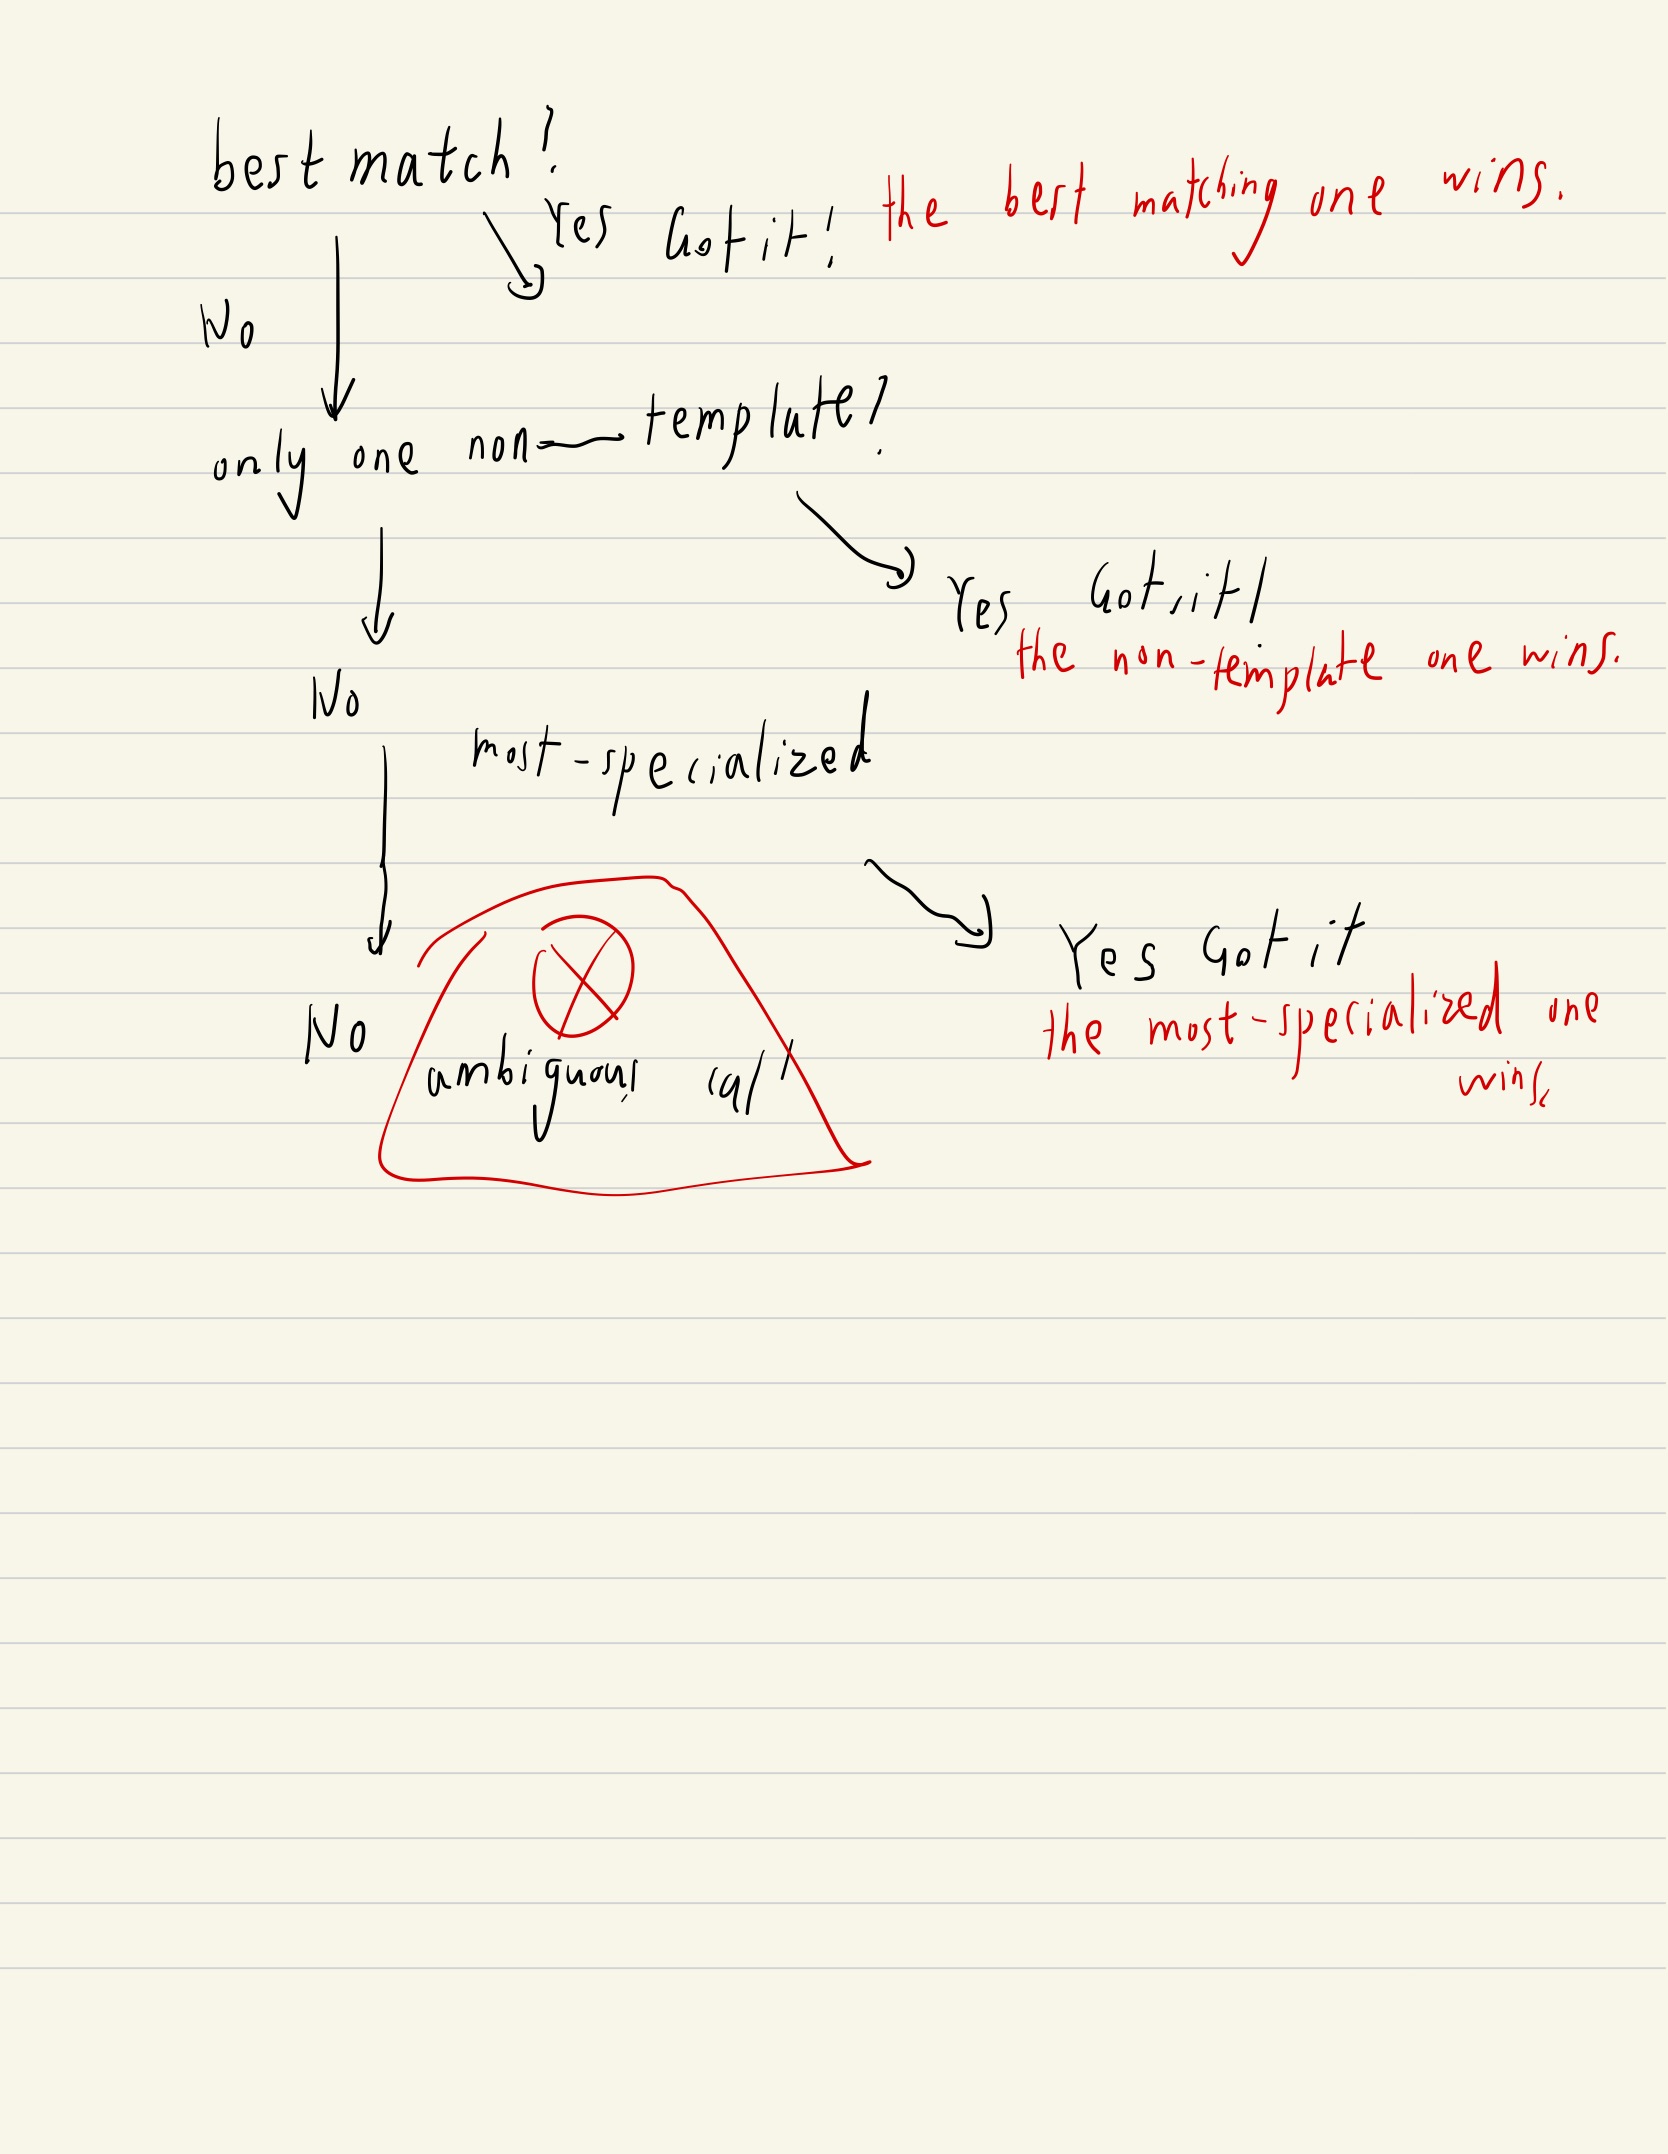 best match?
Yes Got it! the best matching one wins.
No
only one non-template?
Yes Got it!
the non-template one wins.
No
most-specialized
Yes Got it
the most-specialized one
wins.
No
ambiguous call